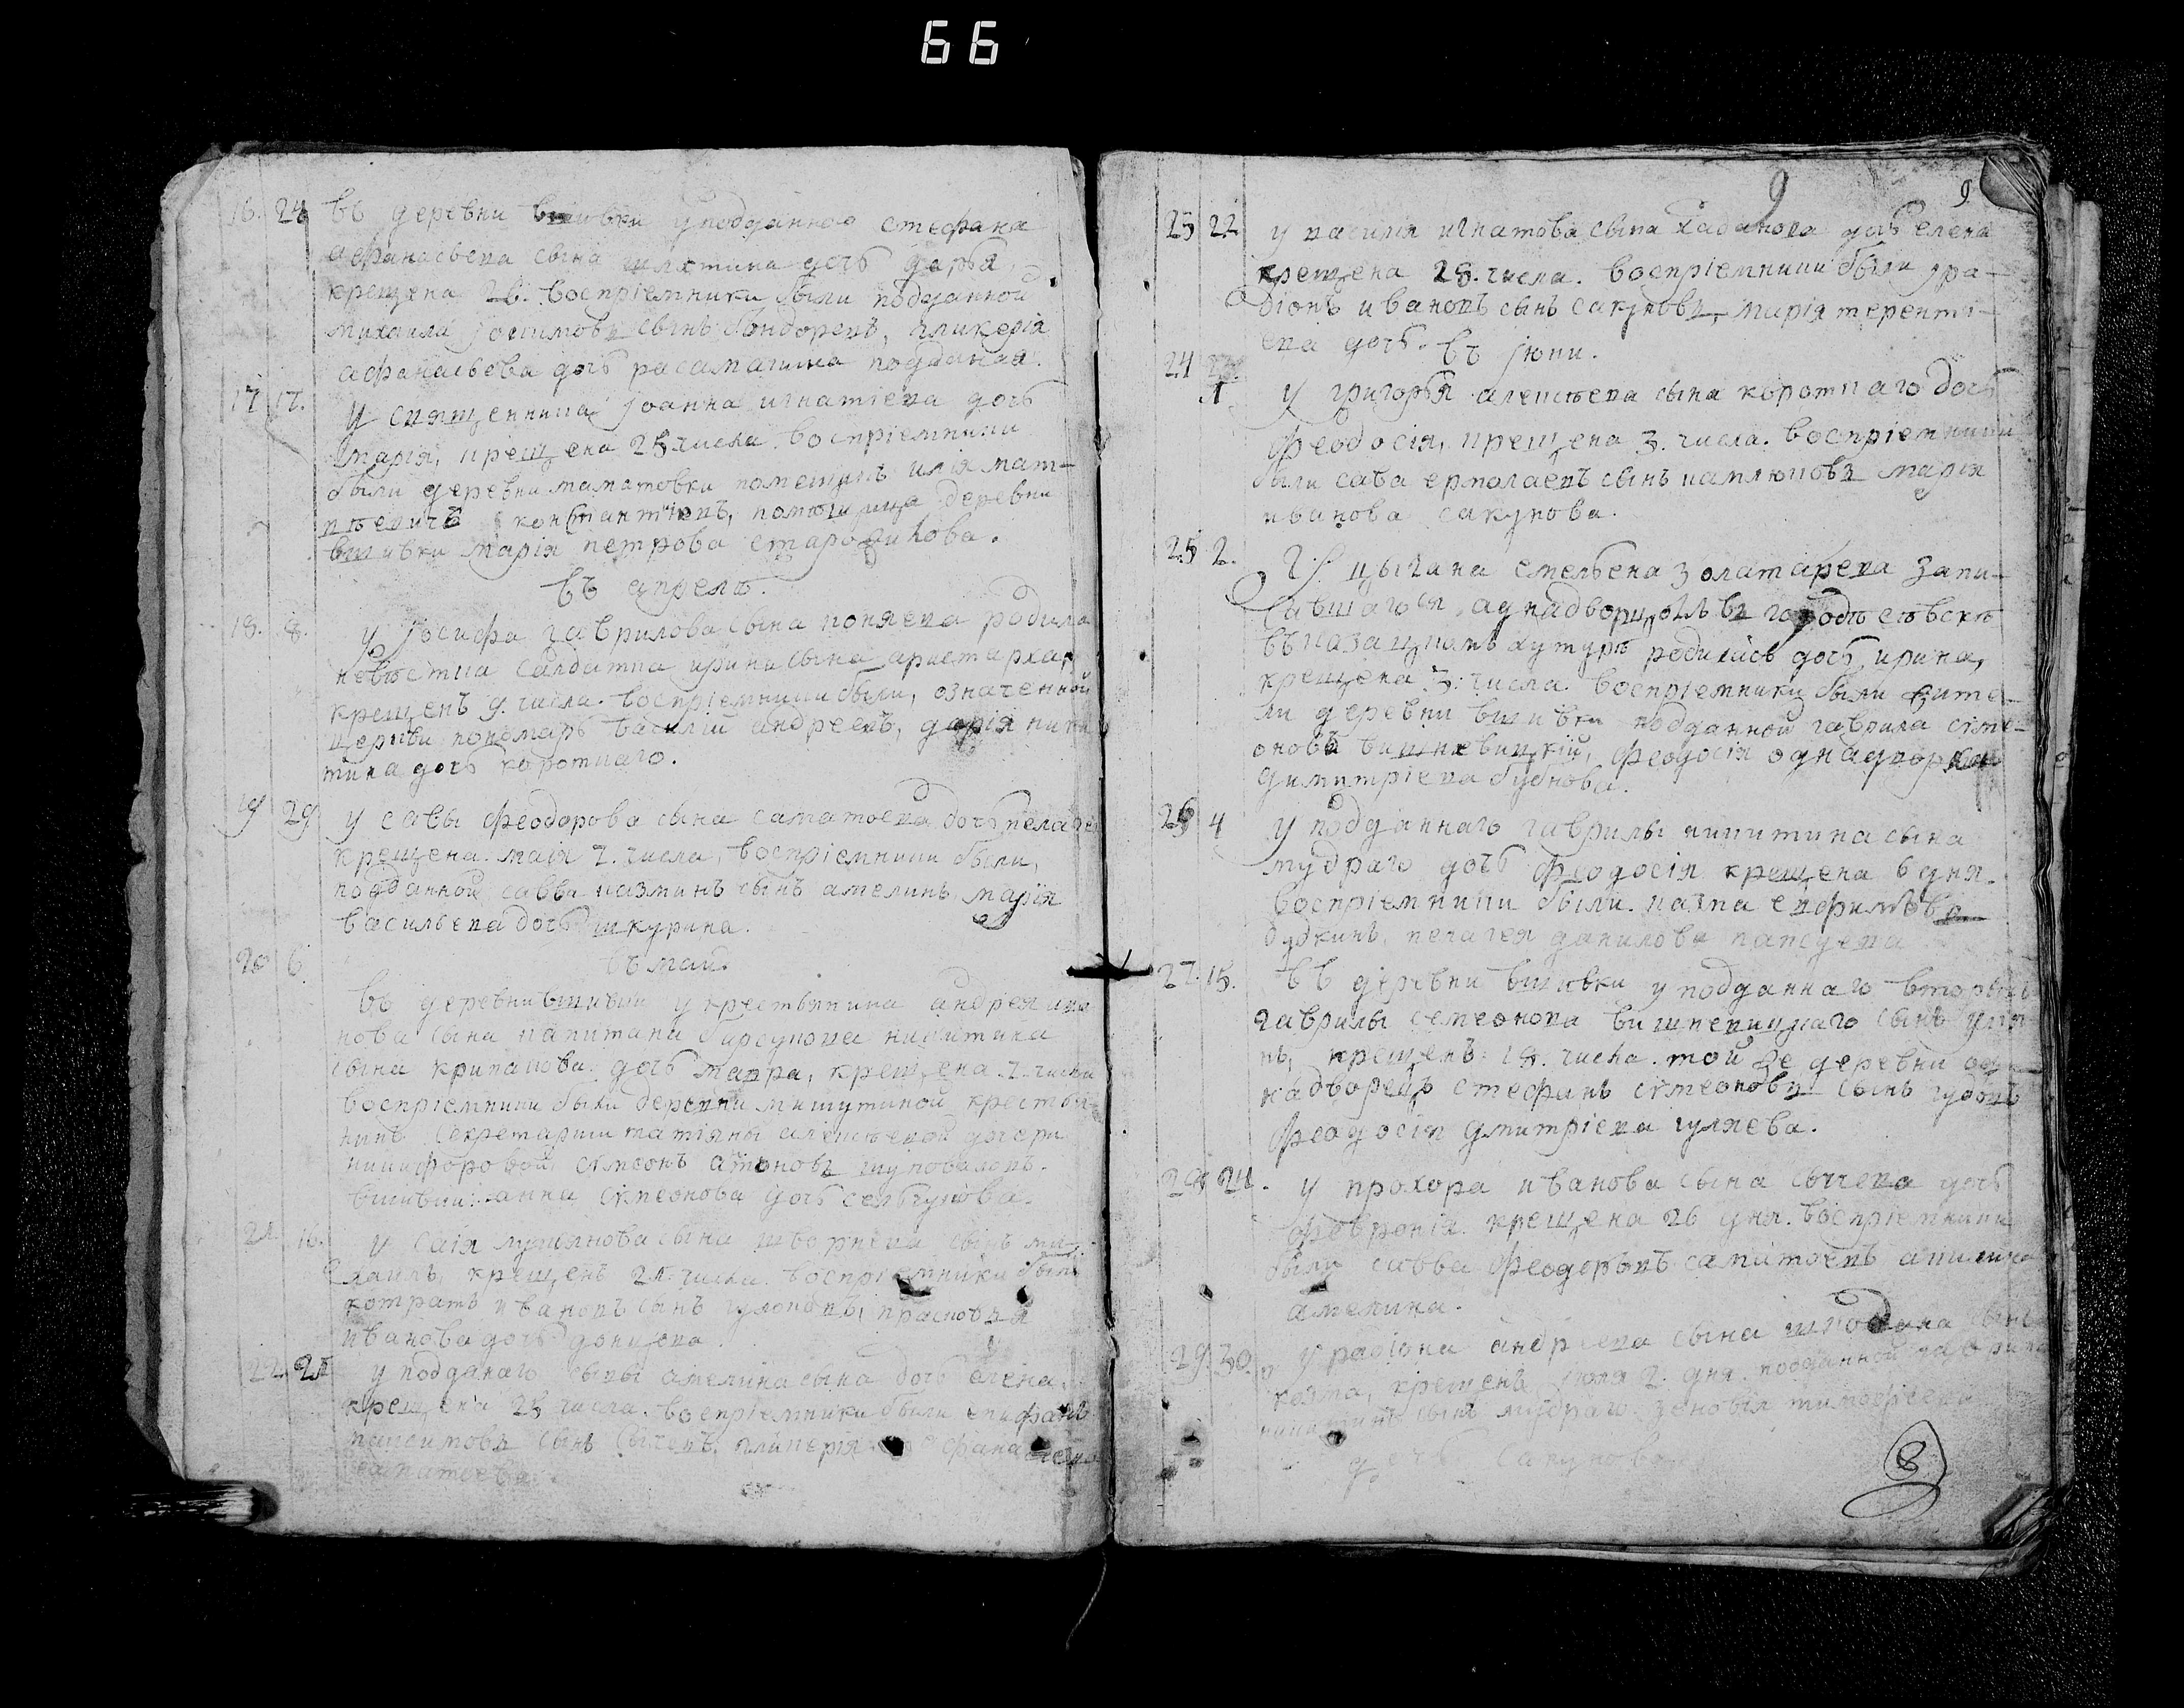 66
16. 24 въ деревни вшивки у подданнаго стефана
афанасьева сына шлятина дочь дарья,
крещена 26. восприемники были подданной
михаила іосимовъ сынъ бондоревъ, гликерія
афанасьева дочь расамагина подданая.
17 17. У священника іоанна игнатіева дочь
марія, крещена 25 числа. восприемники
были деревни маматовки помещикъ илія мат-
вѣевичь константіевъ, помещица деревни
вшивки марія петрова старо кова.
въ апрелѣ.
18. 8. у іосифа гаврилова сына коняева родила
невѣстка салдатка ирина сына аристарха,
крещенъ 9. числа. восприемники были, означенной
церкви пономарь василій андреевъ, дарія ники
тина дочь короткаго.
19 29 у савы феодорова сына саматоева дочь пелагея
крещена маія 7. числа, восприемники были,
подданной савва казминъ сынъ амелинъ, марія
васильева дочь шкурина.
20 6. въ маи.
въ деревни вшивки у крестьянина андрея ива
нова сына капитана барсукова никитина
сына криташова дочь мавра, крещена. 7. числа
восприемники были деревни мишутиной крестья-
нинъ секретарши татіяны алексѣевой дочери
никифоровой симеонъ антоновъ шуповаловъ.
вшивки: анна симеонова дочь сельчукова.
21. 16. у саія лукьянова сына шворнева сынъ ми-
хаилъ, крещенъ 21. числа. восприемники были
котратъ ивановъ сынъ гулоповъ, прасковья
иванова дочь донцева.
22. 21 у подданаго савы амелина сына дочь елена
крещена 25 числа. восприемники были епифанъ
максимовъ сынъ сычевъ, гликерія афанасьева
саматоева.
9 9
23 22 у василія игнатова сына хаданова дочь елена
крещена 28. числа. восприемники были ра-
діонъ ивановъ сынъ сакуновъ, марія теренті-
ева дочь.
въ іюни.
24 1 у григорья алексѣева сына короткаго дочь
феодосія, крещена 3. числа. восприемники
были сава ермолаевъ сынъ камлюковъ марія
иванова сакунова.
25 2. У цыгана емельена золатарева запи-
савшагося аднадворцомъ въ городѣ сѣвскѣ
въ казацкомъ хуторѣ родилась дочь ирина,
крещена 3: числа. восприемники были жите-
ли деревни вшивки подданной гаврила симе-
оновъ вишневицкій, феодосія однадворка
димитріева буднова.
26 4 у подданнаго гаврилы никитина сына
мудраго дочь феодосія крещена 6 дня.
восприемники были. казма ефимовъ
будкинъ, пелагея данилова
27. 15. въ деревни вшивки у подданнаго
гаврилы семеонова вишневицкаго сынъ
крещенъ: 18. числа. той же деревни од-
надворецъ стефанъ симеоновъ сынъ
феодосія дмитріева гуляева.
28 24. у прохора иванова сына сычева дочь
февронія крещена 26 дня. восприемники
были савва феодоровъ саматоевъ акилина
амелина.
29. 30. у радіона андреева сына сынъ
козма, крещенъ іюля 2. дня. подданной гаврила
никитинъ сынъ мудраго. зеновія тимофеева
дочь сакунова
8